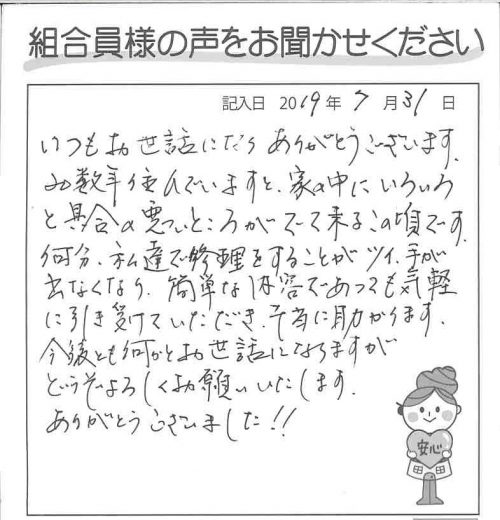 組合員様の声をお聞かせください
記入日 2019年 7月31日
いつもお世話になり ありがとうございます。
数年住んでいますと、家の中にいろいろ
と具合の悪いところがでて来るこの頃です。
何分、私達で修理をすることがツイ、手が
出なくなり、簡単な内容であっても気軽
に引き受けていただき、本当に助かります。
今後とも何かとお世話になりますが
どうぞよろしくお願いいたします。
ありがとうございました!!
安心